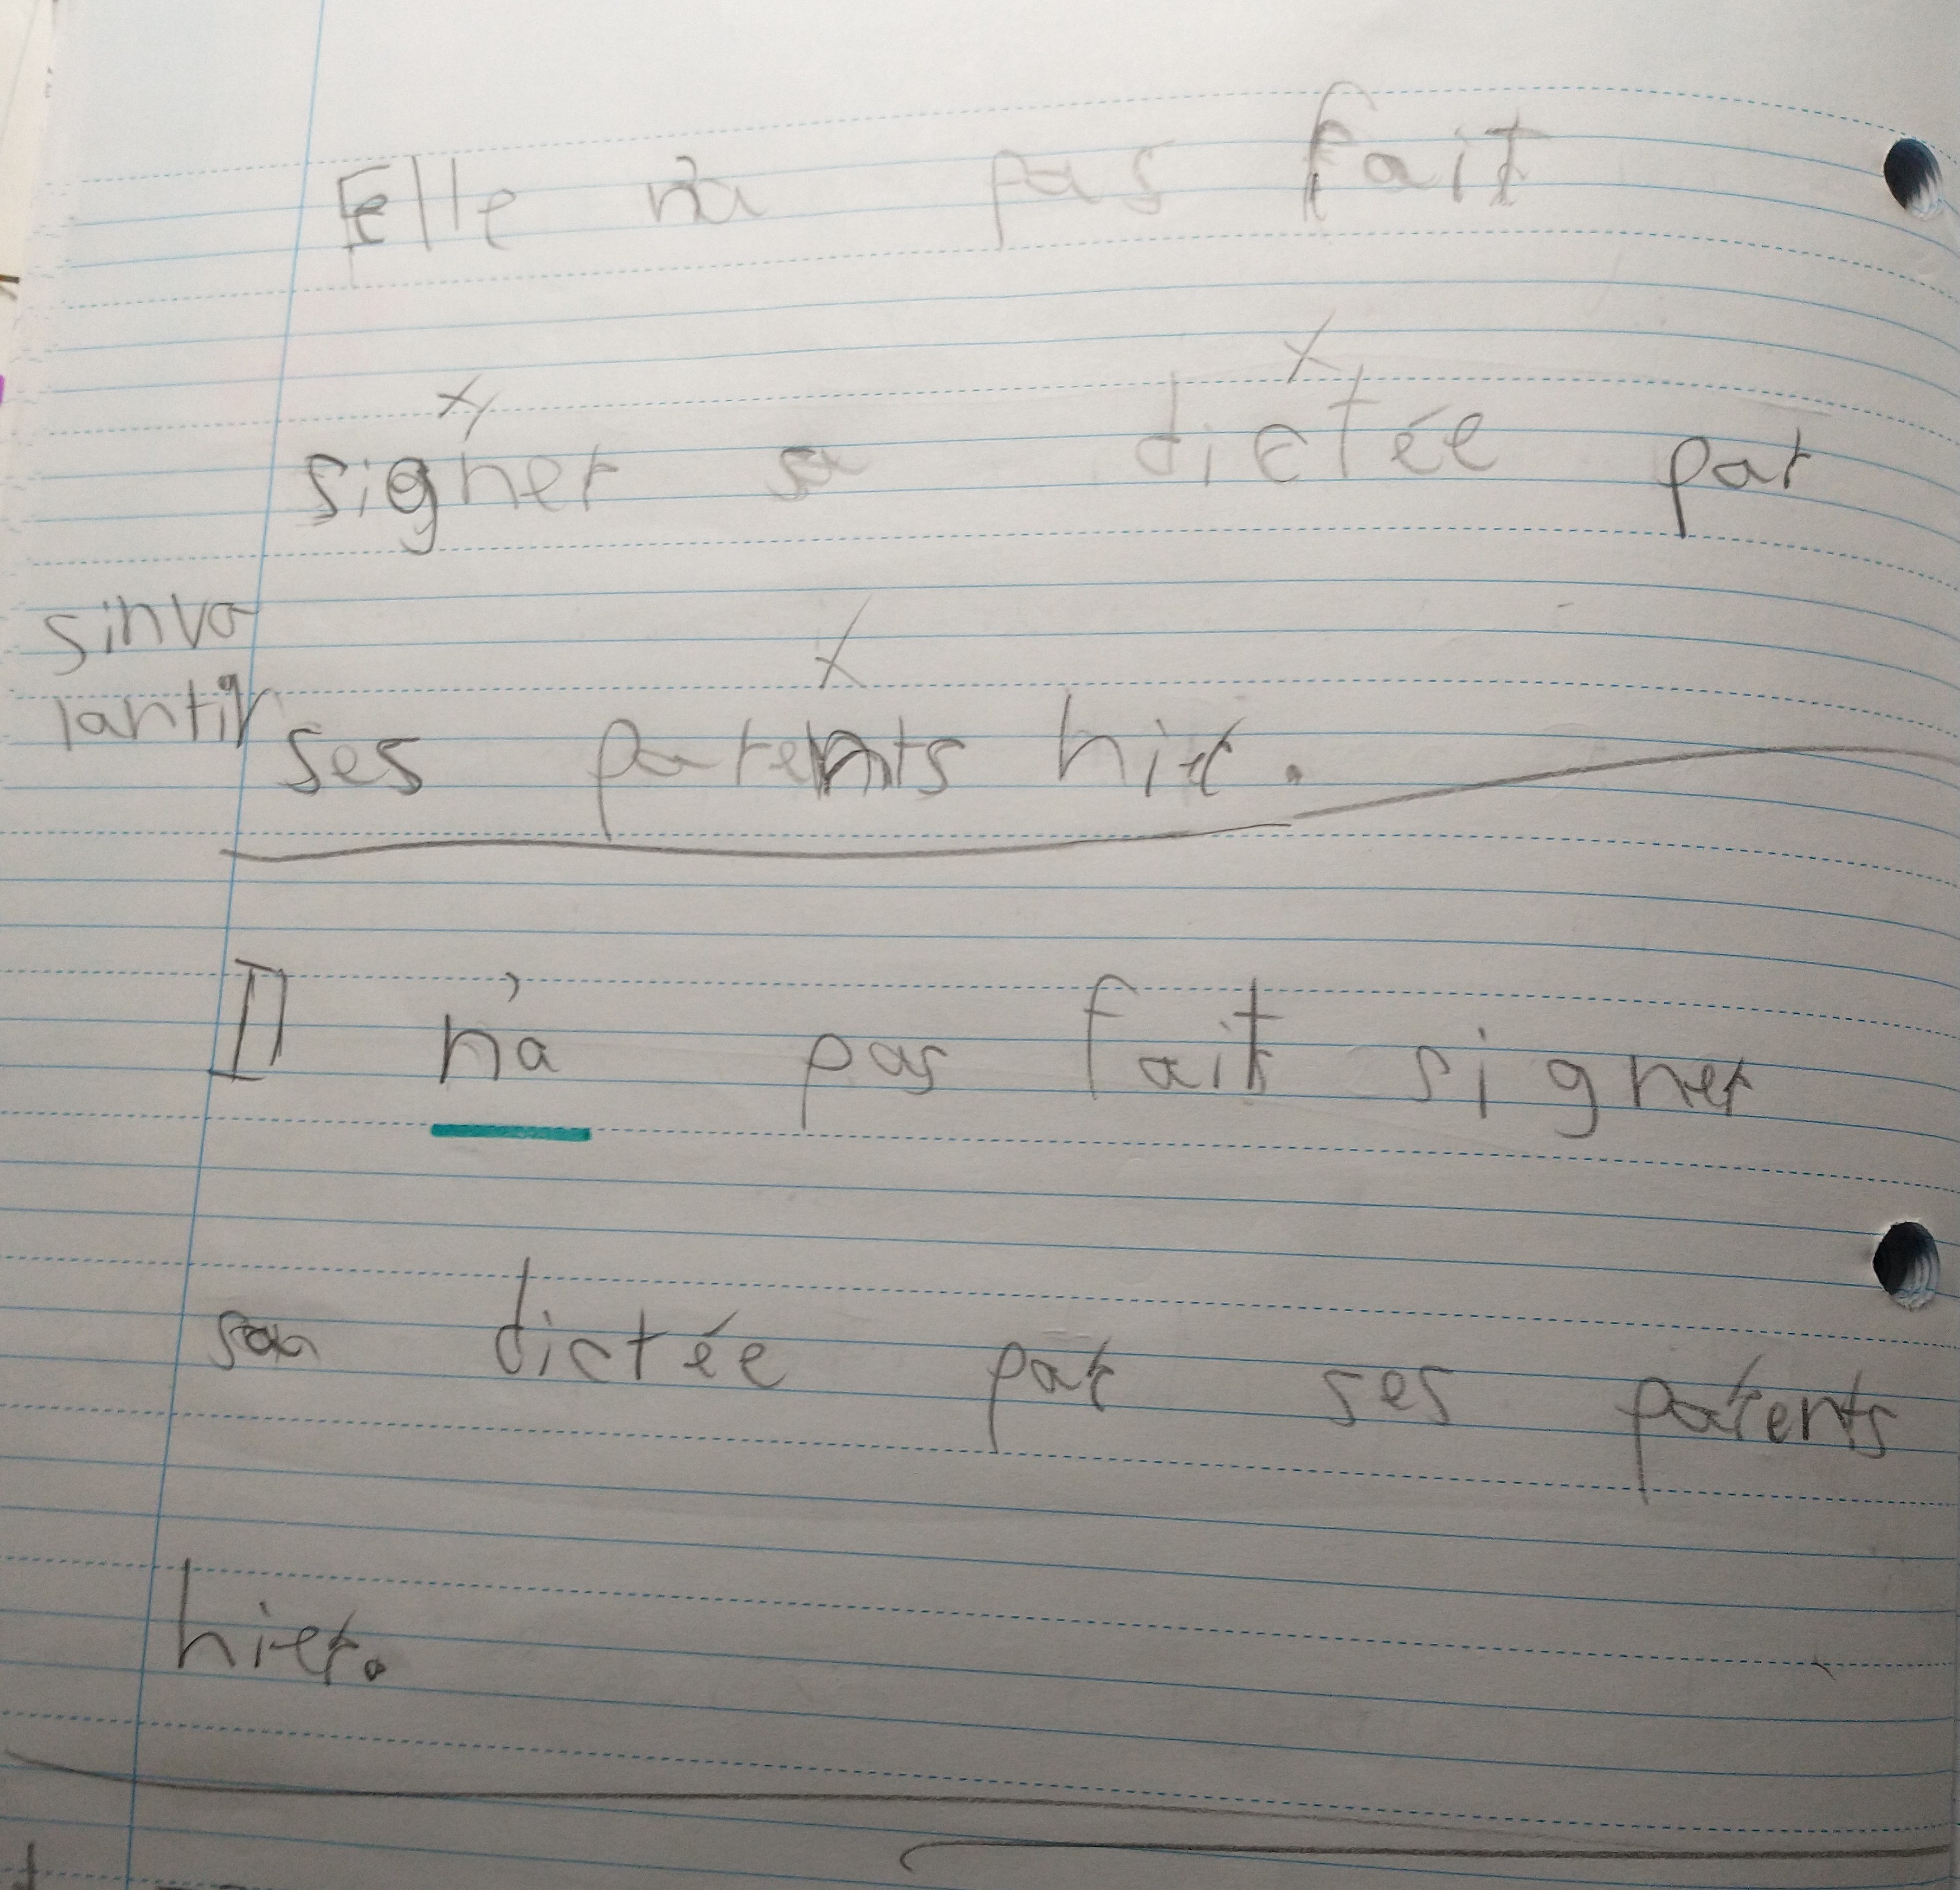 Elle n'a pas fait
signer sa dictée par
sinva
lantin
ses parents hier.
Il n'a pas fait signer
sa dictée par ses parents
hier.